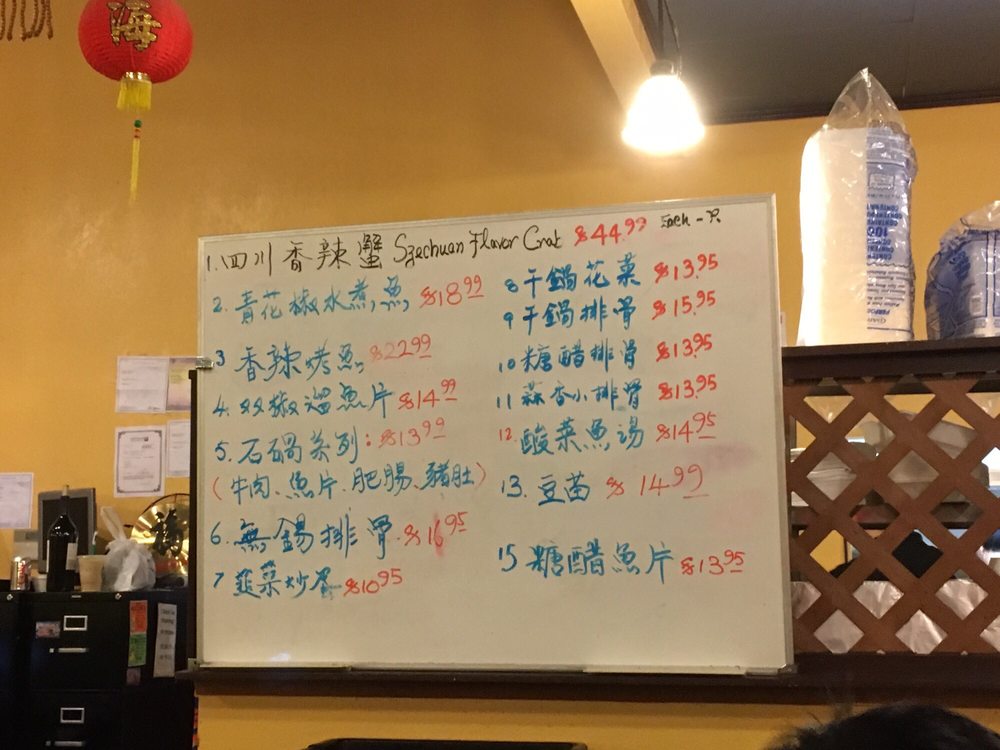 海
1. 四川香辣蟹 Szechuan Flavor Crab $44.99 Each
2. 青花椒水煮魚 $18.99
3 香辣烤魚 $22.99
4. 双椒溜魚片 $14.99
5. 石鍋系列: $13.99
(牛肉、魚片、肥腸、豬肚)
6. 無錫排骨 $16.95
7 韮菜炒蛋 $10.95
8 干鍋花菜 $13.95
9 干鍋排骨 $15.95
10 糖醋排骨 $13.95
11 蒜香小排骨 $13.95
12. 酸菜魚湯 $14.95
13. 豆苗 $14.99
15 糖醋魚片 $13.95